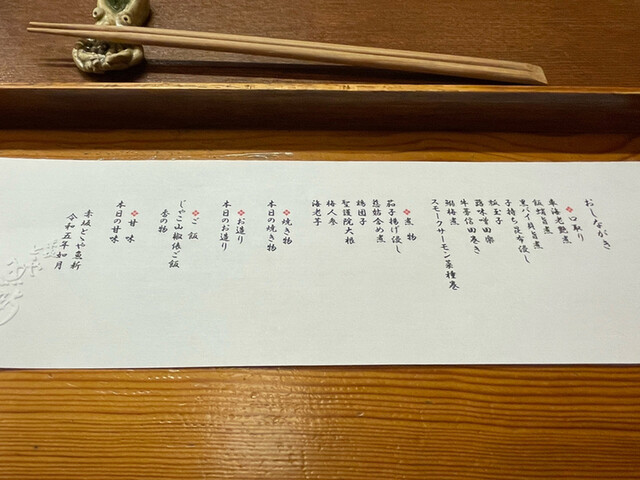 おしながき
口取り
車海老艶煮
飯蛸旨煮
黒バイ貝旨煮
子持ち昆布浸し
飯玉子
蕗味噌田楽
牛蒡信田巻き
梅煮
スモークサーモン菜種巻
煮物
茄子揚げ浸し
慈姑含め煮
鶏団子
聖護院大根
梅人参
海老芋
焼き物
本日の焼き物
お造り
本日のお造り
ご飯
じゃこ山椒俵ご飯
香の物
甘味
本日の甘味
赤坂とゝや魚新
令和五年如月